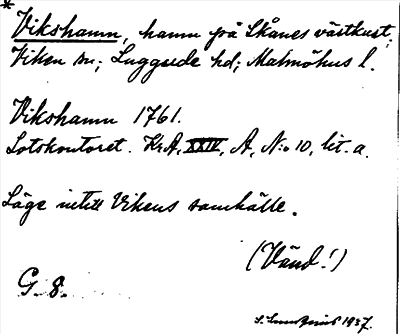 *
Vikshamn, hamn på Skånes västkust;
Viken sn; Luggude hd; Malmöhus l.
Vikshamn 1761.
Lotskontoret. KrA, XXIV, A, N:o 10, lit. a.
Läge intill Vikens samhälle.
(Vänd!)
G. 8.
1937.